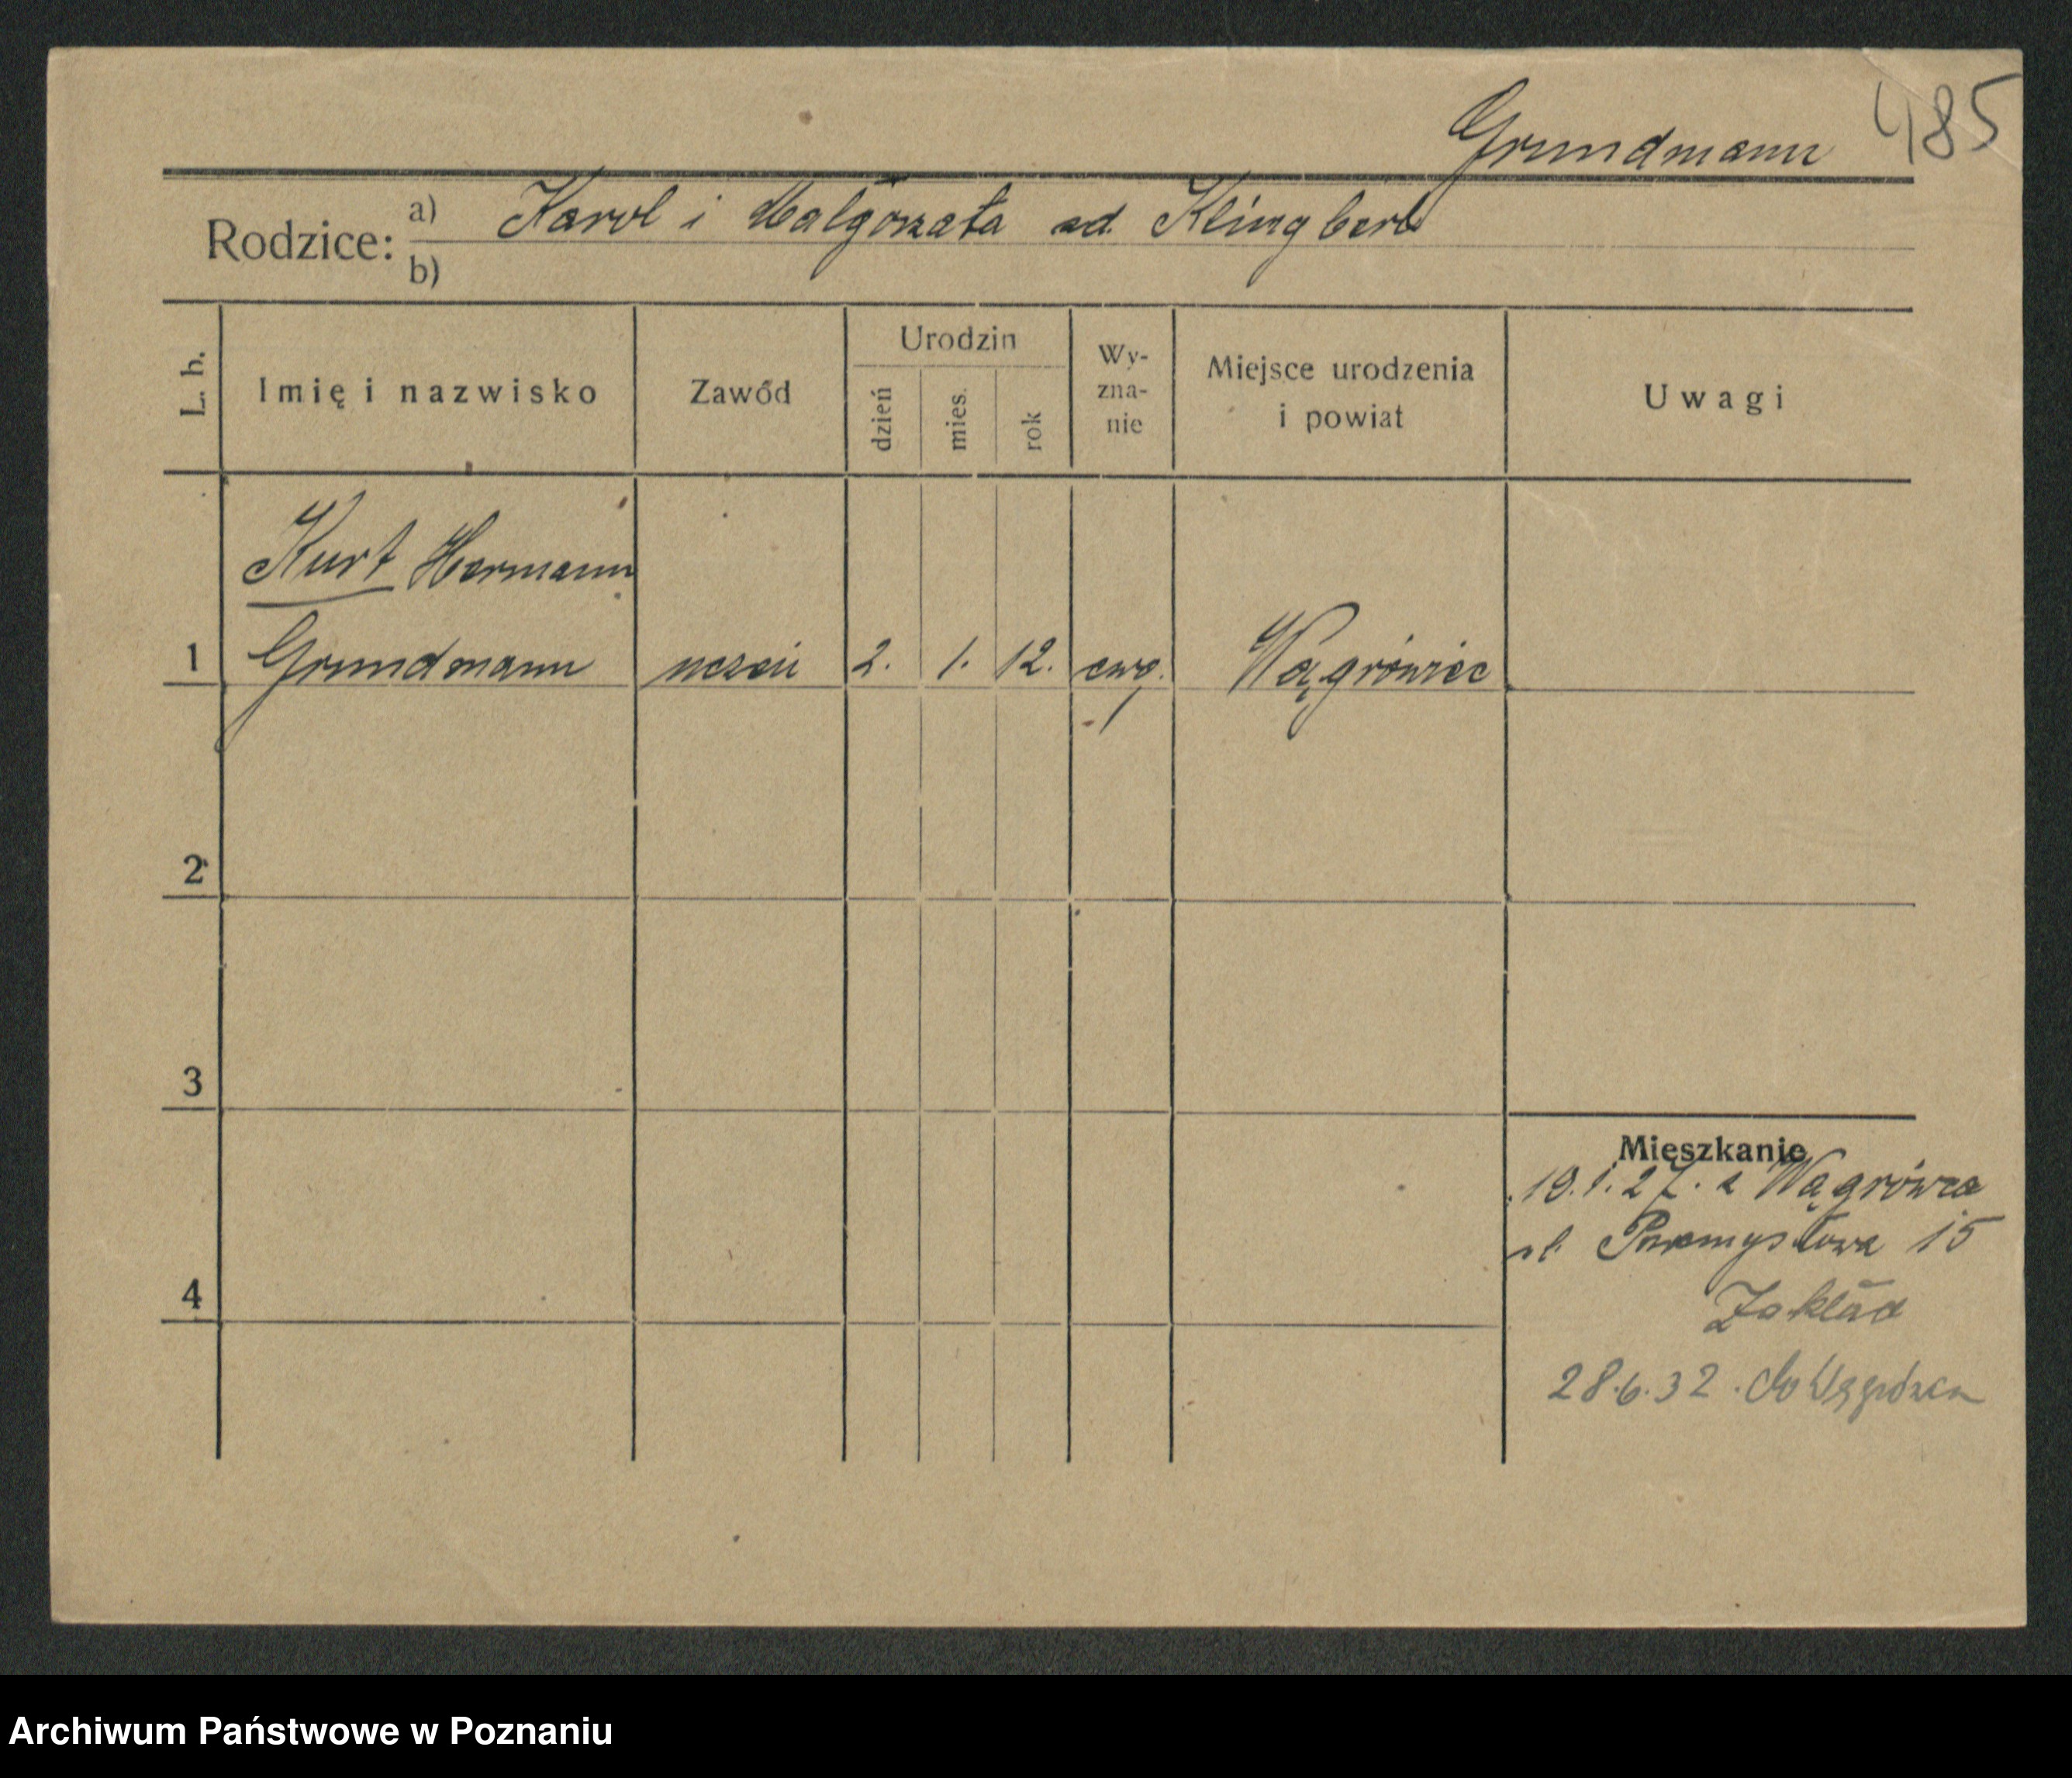 Grundmann 485
Rodzice: a) Karol i Małgorzata od. Klingbeil
b)
L. b. Imię i nazwisko Zawód Urodzin dzień mies. rok Wy-zna-nie Miejsce urodzenia i powiat Uwagi
Kurt Hermann
1 Grundmann uczeń 2. 1. 12. ewg. Wągrówiec
2
3
Mieszkanie
19.1.27. z Wągrówca
ul. Przemysłowa 15
4 Zakład
28.6.32. do Wągrówca
Archiwum Państwowe w Poznaniu